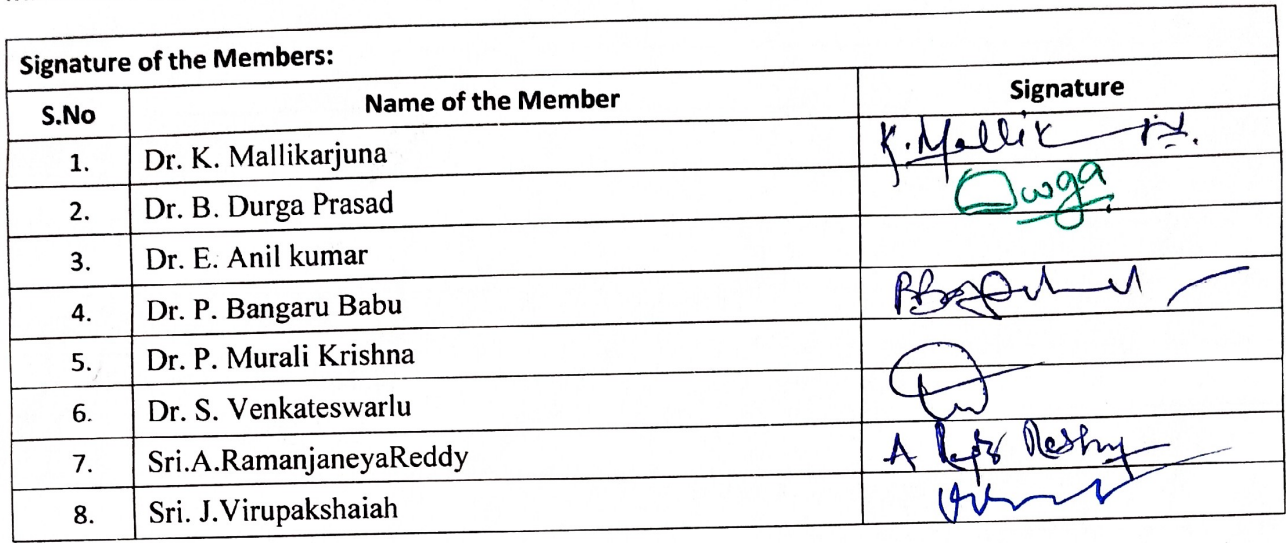 Signature of the Members:
S.No Name of the Member Signature
1. Dr. K. Mallikarjuna K. Mallik
2. Dr. B. Durga Prasad Durga
3. Dr. E. Anil kumar
4. Dr. P. Bangaru Babu
5. Dr. P. Murali Krishna
6. Dr. S. Venkateswarlu
7. Sri.A.RamanjaneyaReddy A Reddy
8. Sri. J.Virupakshaiah